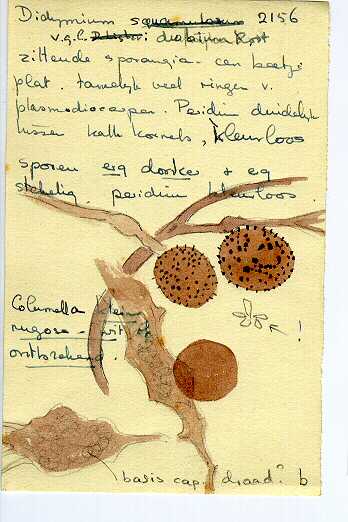 Didymium squamulosum 2156
v.g.l. dubium Rost
zittende sporangia een beetje
plat. tamelijk veel ringen v.
plasmodiocarpen. Peridium duidelijk
tussen kalk korrels, kleurloos
sporen erg donker + erg
stekelig. peridium kleurloos.
Columella klein
rugose - wit
ontbrekend.
!
basis cap. draad? b